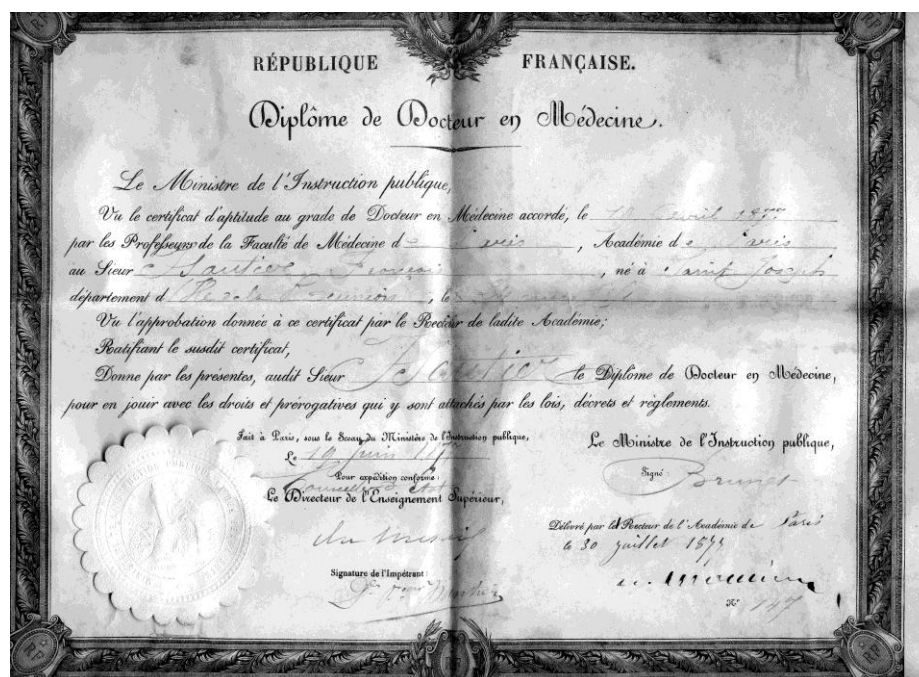 RÉPUBLIQUE FRANÇAISE.
Diplôme de Docteur en Médecine.
Le Ministre de l'Instruction publique,
Vu le certificat d'aptitude au grade de Docteur en Médecine accordé, le avril 1877
par les Professeurs de la Faculté de Médecine de Paris, Académie de Paris
au Sieur François, né à Saint Joseph
département d Ile de la Réunion, le
Vu l'approbation donnée à ce certificat par le Recteur de ladite Académie;
Ratifiant le susdit certificat,
Donne par les présentes, audit Sieur le Diplôme de Docteur en Médecine,
pour en jouir avec les droits et prérogatives qui y sont attachés par les lois, décrets et règlements.
Fait à Paris, sous le Sceau du Ministère de l'Instruction publique,
Le 19 Juin
Pour expédition conforme:
Le Directeur de l'Enseignement Supérieur,
Signature de l'Impétrant:
Le Ministre de l'Instruction publique,
Signé: Brunet
Délivré par le Recteur de l'Académie de Paris
le 30 juillet 1877
N° 147
RF
RF
RF
RF
RF